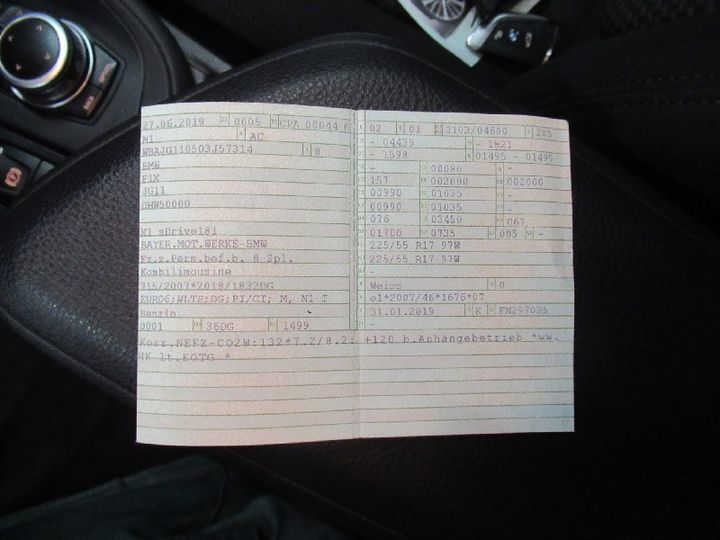 27.06.2019 0005 CPA 00044 6
M1 AC
WBAJG110503J57314 8
BMW
F1X
JG11
DHW50000
X1 sDrive18i
BAYER.MOT.WERKE-BMW
Fz.z.Pers.bef.b. 8 Spl.
Kombilimousine
715/2007*2018/1832DG
EURO6;WLTP;DG;PI/CI; M, N1 I
Benzin
0001 36DG 1499
02 01 0103/04600 205
- 04439 - 1821
- 1598 01495 - 01495
- 00080 -
157 002000 002000
00990 01035 -
00990 01035 -
076 03450 067
01700 0735 005 -
225/55 R17 97W
225/55 R17 97W
-
Weiss 0
e1*2007/46*1676*07
31.01.2019 K FN297035
-
Korr.NEFZ-CO2W:132*7.2/8.2: +120 b.Anhängebetrieb *ww.
HK lt.EGTG *